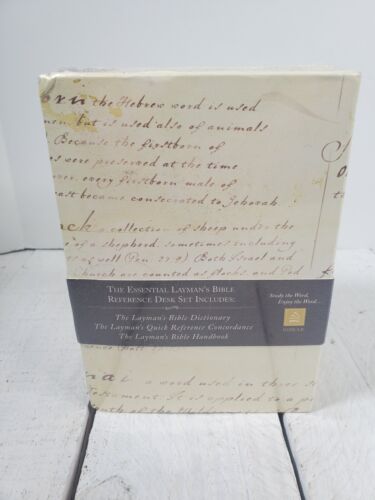 the Hebrew word is used
but is used also of animals
Because the firstborn of
were preserved at the time
every firstborn male of
became consecrated to Jehovah
a collection of sheep under the
of a shepherd, sometimes including
as well (Gen. 27:9) Both Israel and
Church are counted as flocks, and God
THE ESSENTIAL LAYMAN'S BIBLE
REFERENCE DESK SET INCLUDES:
The Layman's Bible Dictionary
The Layman's Quick Reference Concordance
The Layman's Bible Handbook
Study the Word,
Enjoy the Word...
a word used in three
Testament. It is applied to a
of the